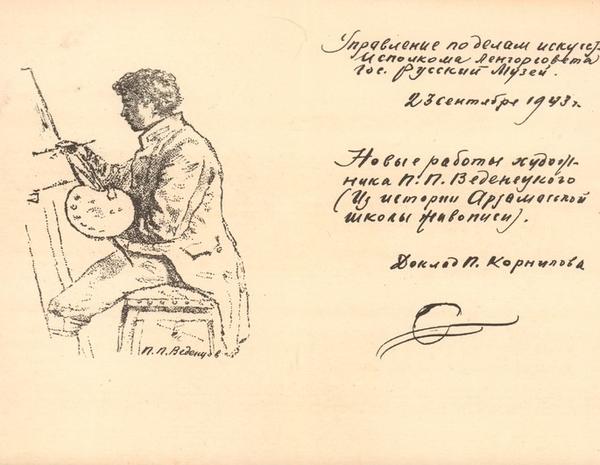 Управление по делам искусст
Исполкома Ленгорсовета
Гос. Русский Музей.
23 сентября 1943 г.
Новые работы худож-
ника П. П. Веденецкого
(Из истории Арзамасской
школы живописи).
Доклад П. Корнилова
П. П. Веденецк